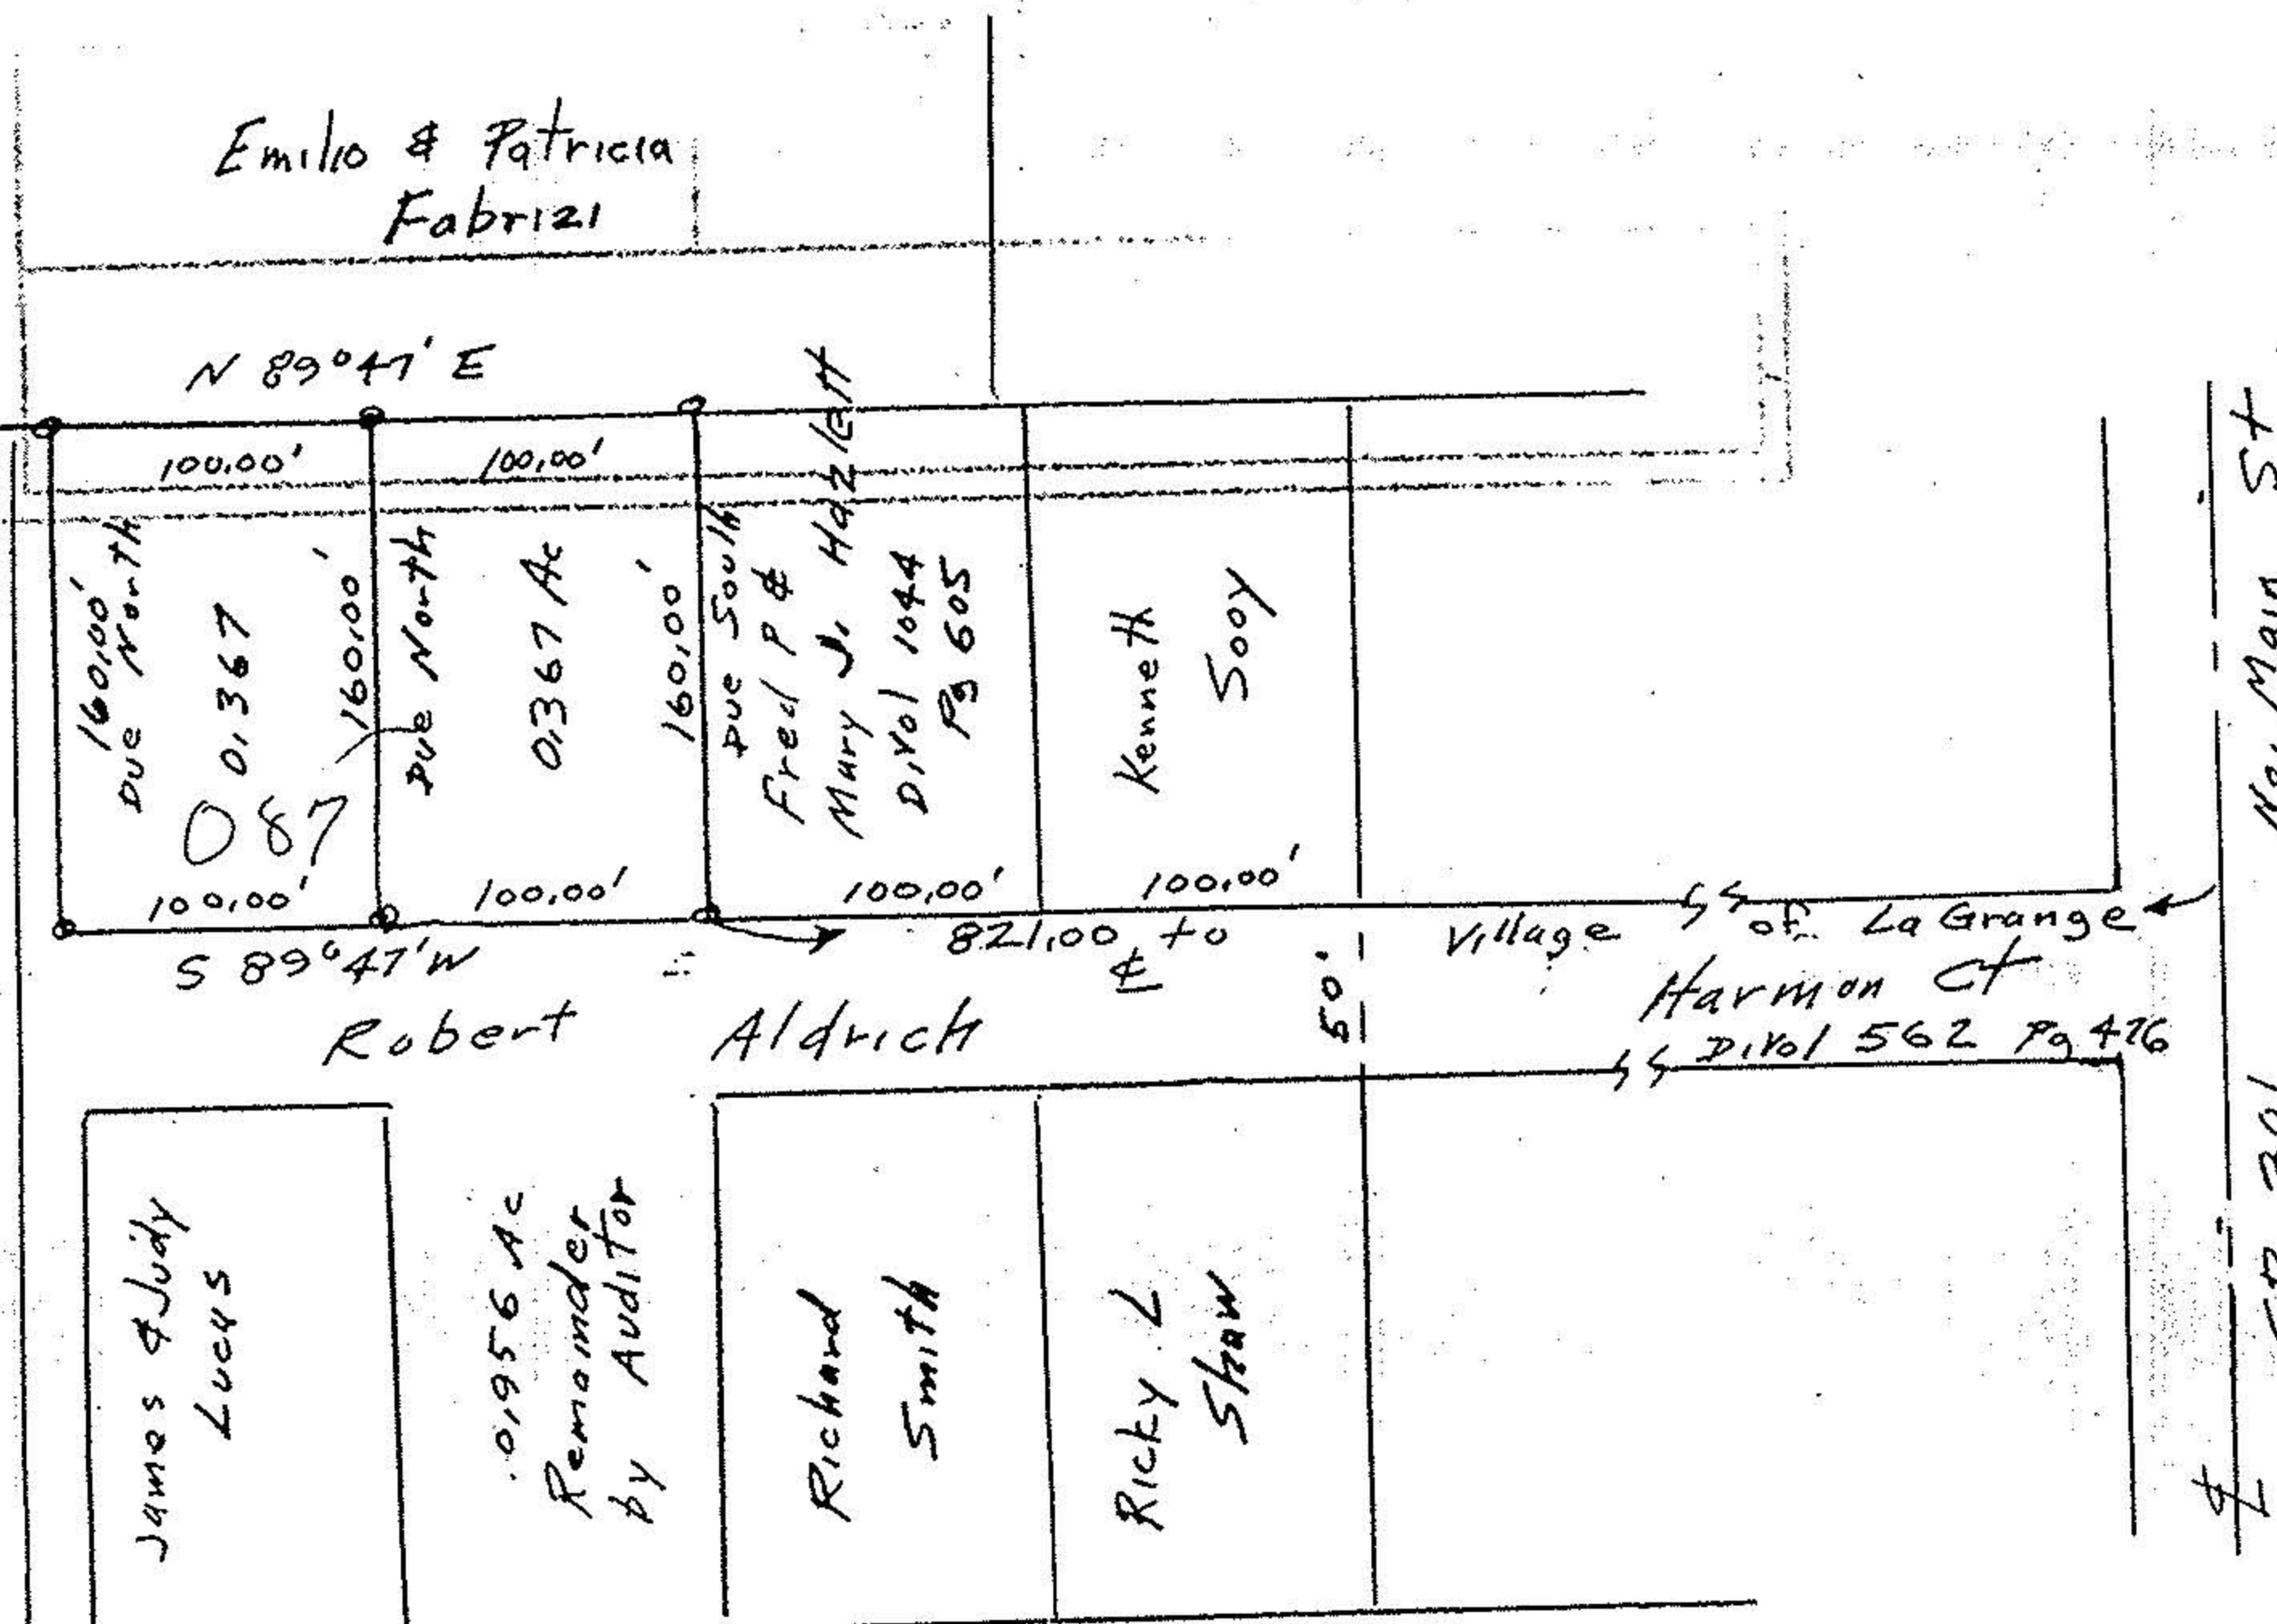 Emilio & Patricia
Fabrizi
N 89°47' E
100.00'
100.00'
160.00'
Due North
0.367
160.00'
087
100.00'
Due North
0.367 Ac
160.00'
100.00'
Due South
Fred P &
Mary J. Hazlett
D.Vol 1044
Pg 605
100.00'
Kenneth
Sooy
100.00'
S 89°47' W
821.00 to
℄
Village of LaGrange
Harmon Ct
D.Vol 562 Pg 476
50'
Robert Aldrich
James & Judy
Lucas
0.956 Ac
Remainder
by Auditor
Richard
Smith
Ricky L
Shaw
No. Main St
℄